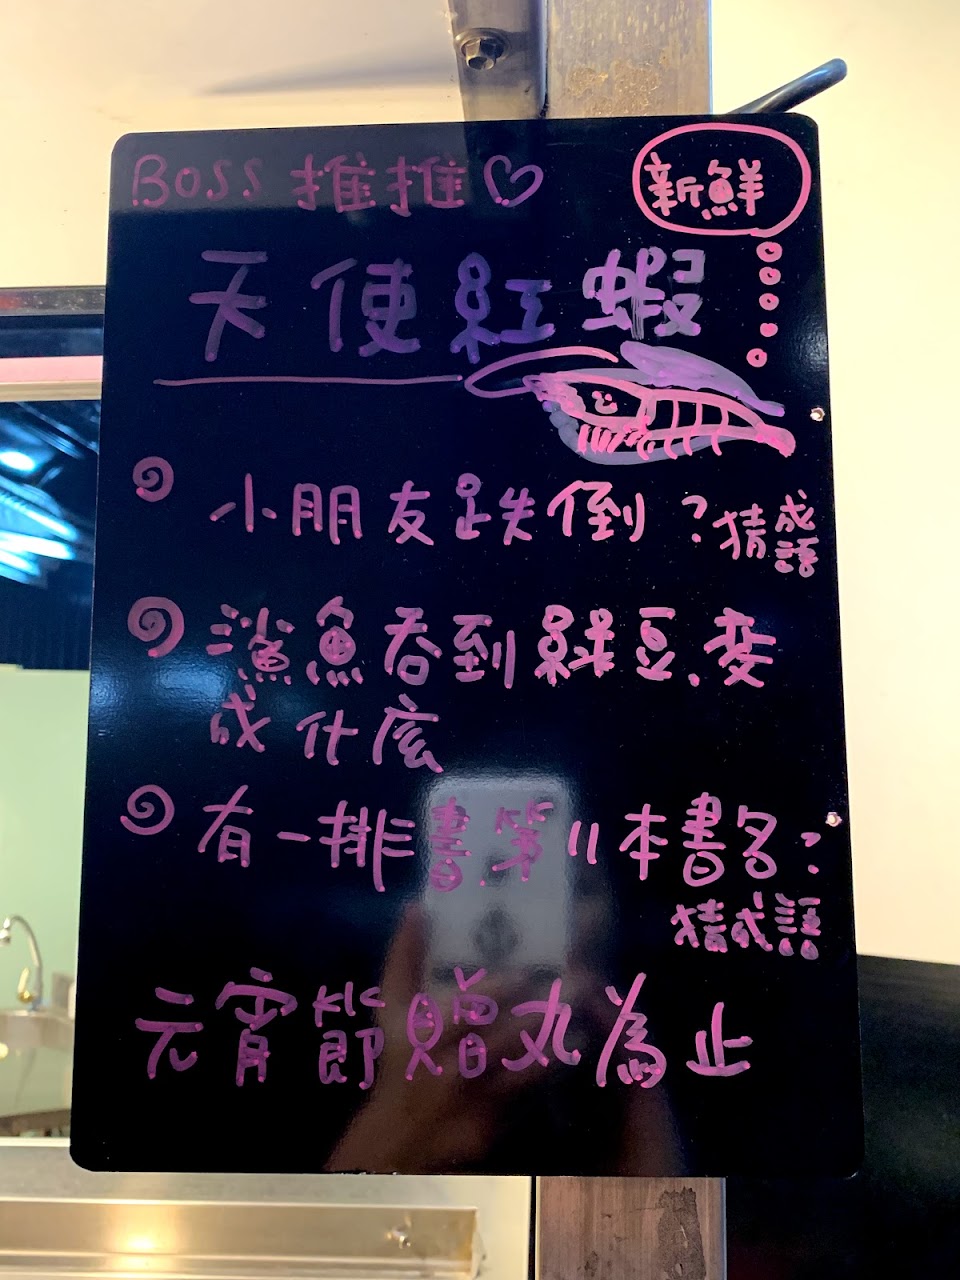 Boss 推推♡
新鮮
天使紅蝦
小朋友跌倒?猜成語
鯊魚吞到綠豆.變
成什底
有一排書.第11本書名?
猜成語
元宵節贈丸為止